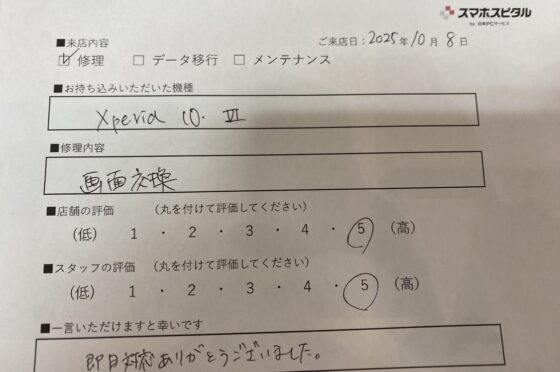 スマホスピタル
by 日本PCサービス
■来店内容
ご来店日：2025年10月8日
☑ 修理 □ データ移行 □ メンテナンス
■お持ち込みいただいた機種
Xperia 10. VI
■修理内容
画面交換
■店舗の評価 （丸を付けて評価してください）
（低） 1 ・ 2 ・ 3 ・ 4 ・ 5 （高）
■スタッフの評価 （丸を付けて評価してください）
（低） 1 ・ 2 ・ 3 ・ 4 ・ 5 （高）
■一言いただけますと幸いです
即日対応ありがとうございました。